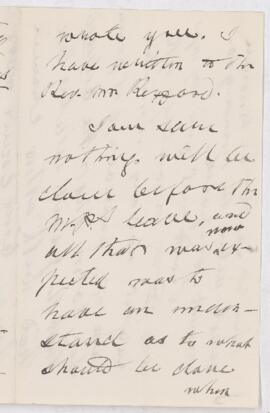 wrote you. I
have written to the
Rev. Mr. Reppard.
I am sure
nothing will be
done before the
M.P.S leave, and
all that was now ex-
pected was to
have an under-
stand as to what
should be done
when